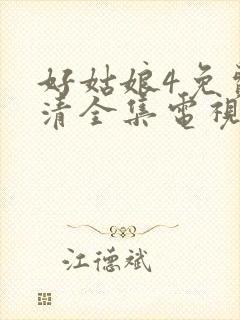 好姑娘4免
清全集電視
江德斌